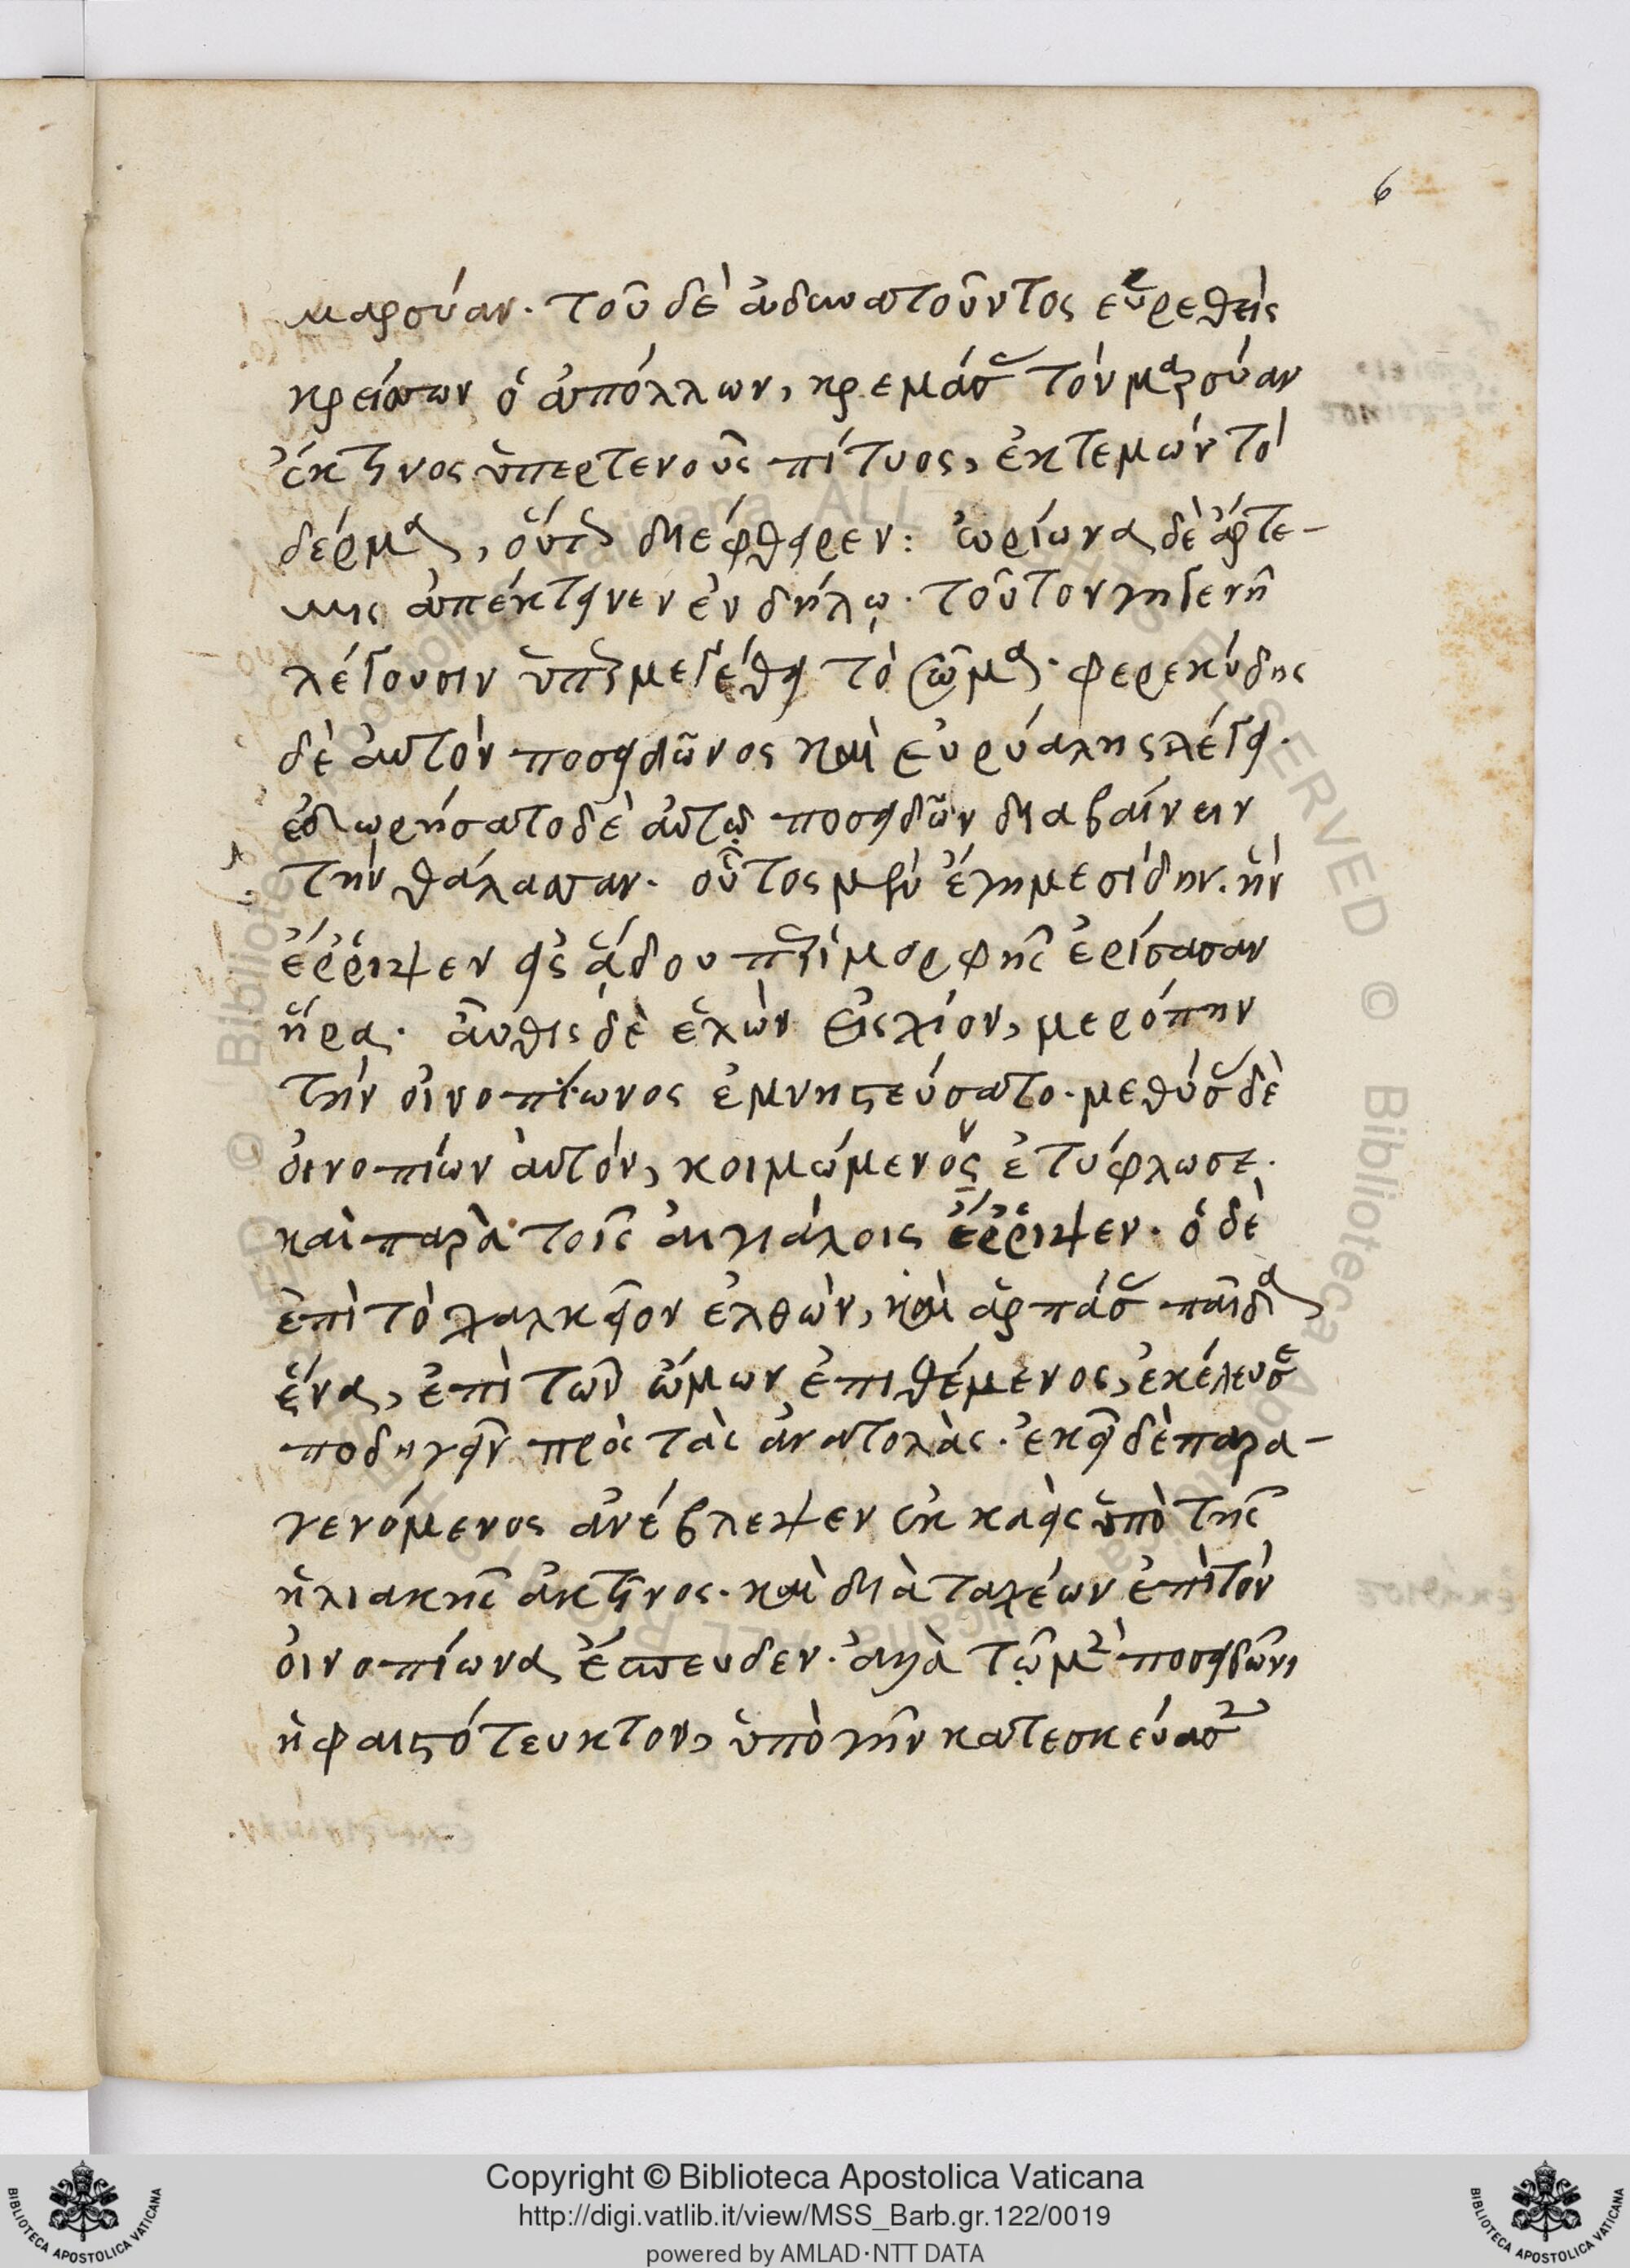 6
μαρσύαν. τοῦ δὲ ἀδυνατοῦντος εὑρεθεὶς
κρείσσων ὁ ἀπόλλων, κρεμάσας τὸν μαρσύαν
ἔκ τινος ὑπερτενοῦς πίτυος, ἐκτεμὼν τὸ
δέρμα, οὕτως διέφθειρεν: ὠρίωνα δὲ ἄρτε-
μις ἀπέκτεινεν ἐν δήλῳ. τοῦτον γηγενῆ
λέγουσιν ὑπερμεγέθη τὸ σῶμα. φερεκύδης
δὲ αὐτὸν ποσειδῶνος καὶ εὐρυάλης λέγει.
ἐδωρήσατο δὲ αὐτῷ ποσειδῶν διαβαίνειν
τὴν θάλασσαν. οὗτος μὲν ἔγημε σίδην. ἣν
ἔρριψεν εἰς ἅδου περὶ μορφῆς ἐρίσασαν
ἥρα. αὖθις δὲ ἐλὼν εἰς λίον, μερόπην
τὴν οἰνοπίωνος ἐμνηστεύσατο. μεθύσας δὲ
οἰνοπίων αὐτὸν, κοιμώμενος ἐτύφλωσε.
καὶ παρὰ τοῖς αἰγιάλοις ἔρριψεν. ὁ δὲ
ἐπὶ τὸ χαλκεῖον ἐλθὼν, καὶ ἁρπάσας παῖδα
ἕνα, ἐπὶ τῶν ὤμων ἐπιθέμενος, ἐκέλευσε
ποδηγεῖν πρὸς τὰς ἀνατολὰς. ἐκεῖ δὲ παρα-
γενόμενος ἀνέβλεψεν ἐκ καεὶς ὑπὸ τῆς
ἡλιακῆς ἀκτῖνος. καὶ διὰ ταχέων ἐπὶ τὸν
οἰνοπίωνα ἔσπευδεν. ἀλλὰ τῷ μὲν ποσειδῶνι
ἡφαιστότευκτον, ὑπὸ γῆν κατεσκεύασεν
Copyright © Biblioteca Apostolica Vaticana
http://digi.vatlib.it/view/MSS_Barb.gr.122/0019
powered by AMLAD·NTT DATA